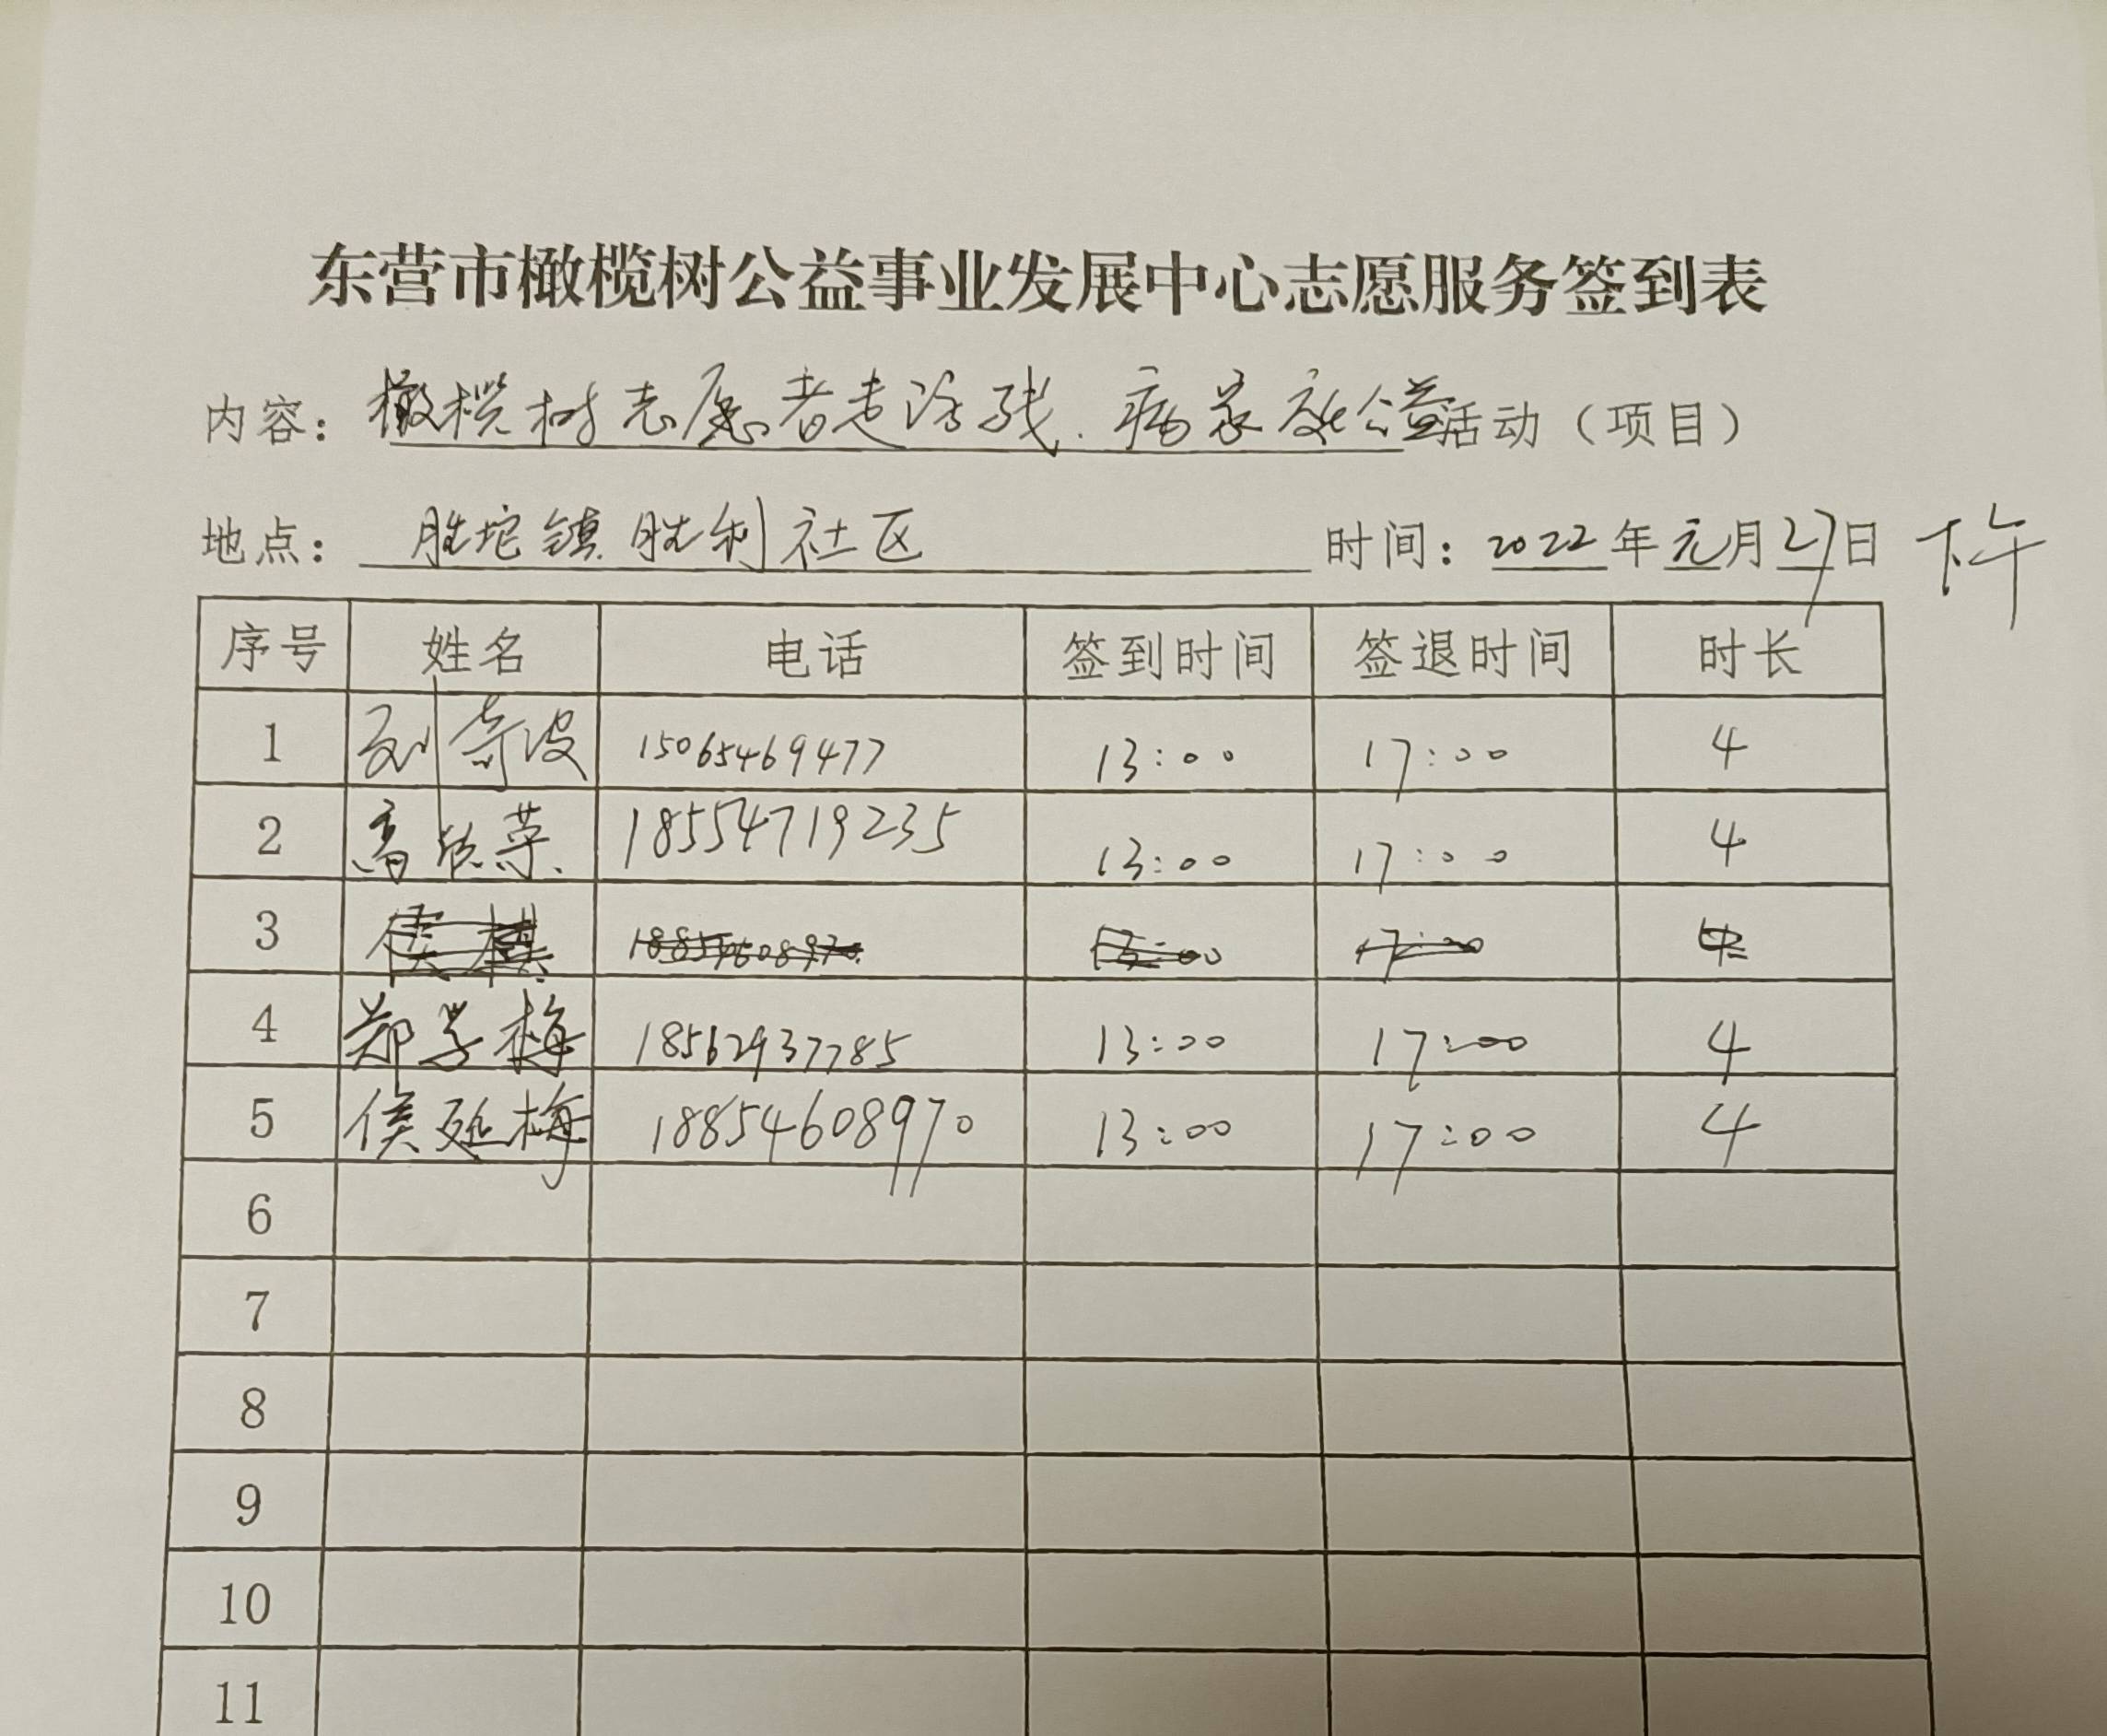 东营市橄榄树公益事业发展中心志愿服务签到表
内容：橄榄树志愿者走访残、病家庭公益活动（项目）
地点：胜坨镇胜利社区 时间：2022年元月27日 下午
序号 姓名 电话 签到时间 签退时间 时长
1 刘奇波 15065469477 13:00 17:00 4
2 高 菜 18554719235 13:00 17:00 4
3 侯 18854608970 13:00 17:00 4
4 郑学梅 18562937785 13:00 17:00 4
5 侯延梅 18854608970 13:00 17:00 4
6
7
8
9
10
11